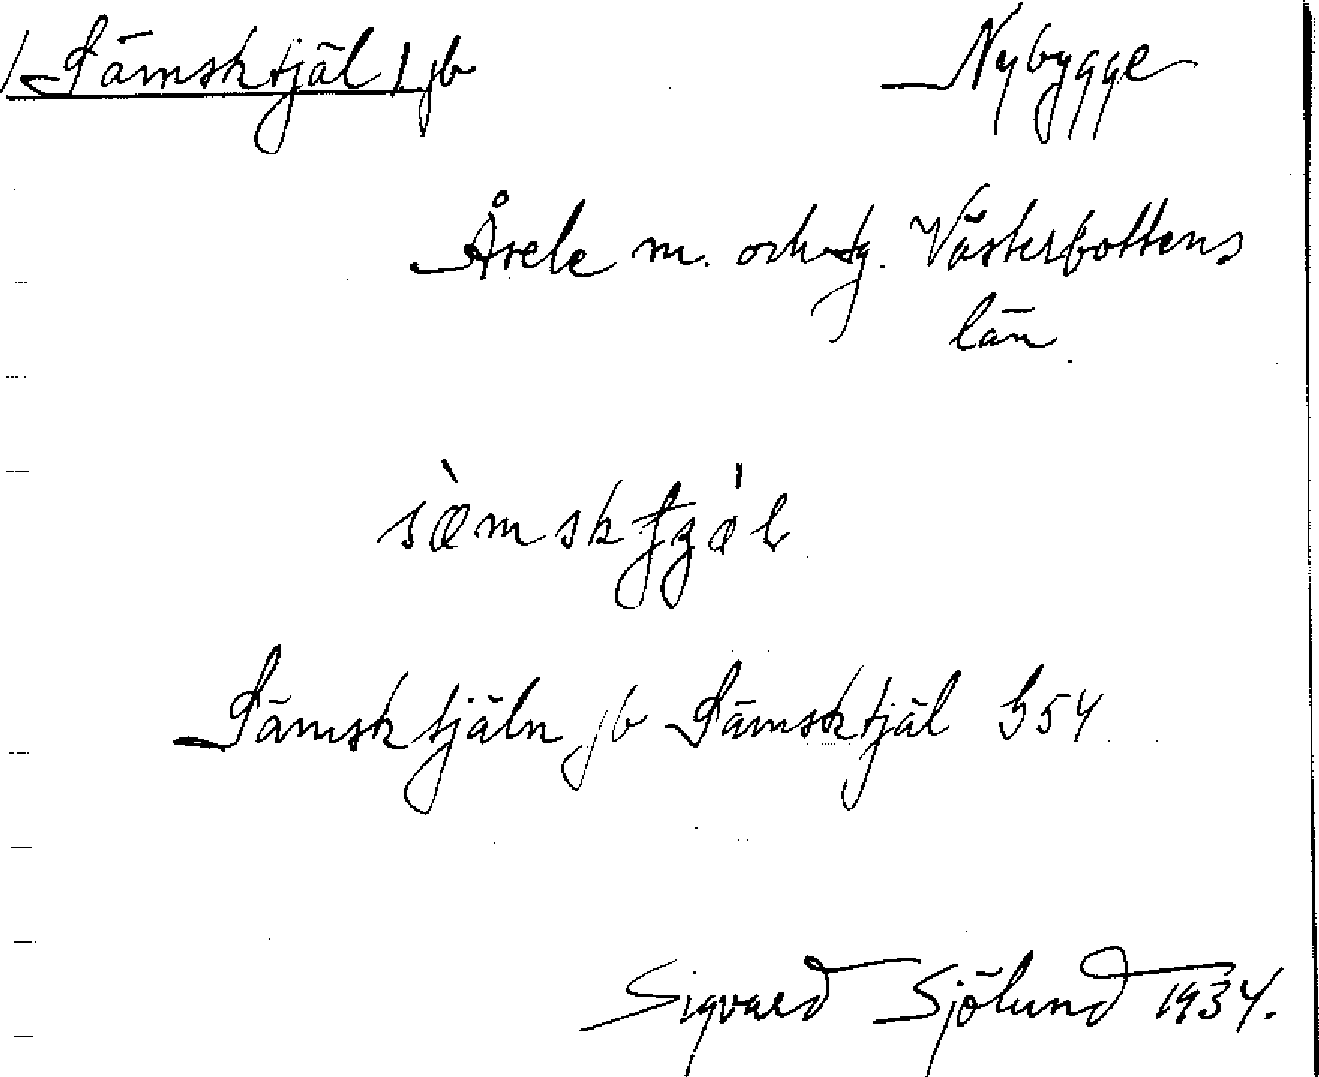 /Sämsktjäl/ jb Nybygge
Åsele m. och tg. Västerbottens
län
Sämsktjäln jb Sämsktjäl G54
Sigvard Sjölund 1934.